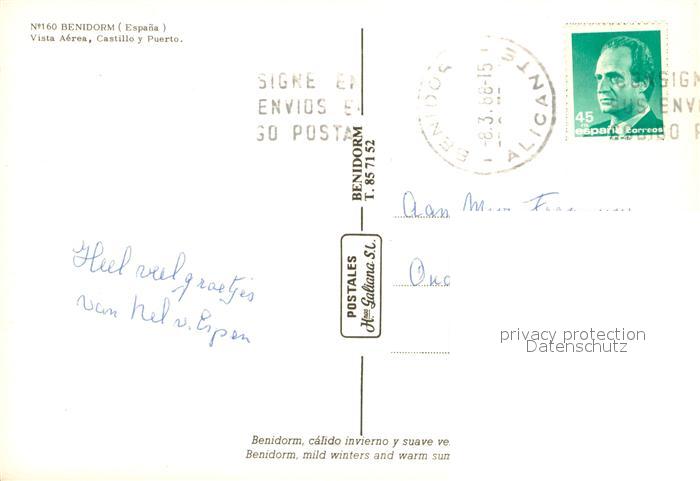 Nº160 BENIDORM ( España )
Vista Aérea, Castillo y Puerto.
SIGNE E
ENVIOS E
GO POSTA
BENIDORM
-8.3.88-15
ALICANTE
45
españa correos
BENIDORM
T. 85 71 52
POSTALES
Hnos Galiana S.L.
Aan
Heel veel groetjes
van Nel v. Erpen
privacy protection
Datenschutz
Benidorm, cálido invierno y suave ve
Benidorm, mild winters and warm sun